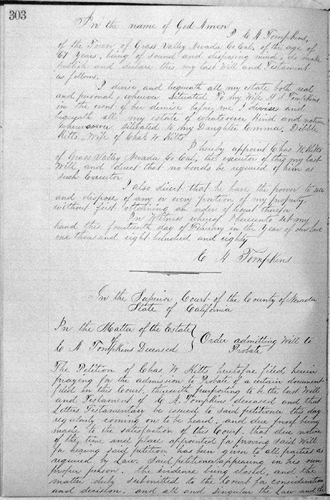 303
In the name of God Amen
I, C A Tompkins,
of the Town of Grass Valley Nevada Co Cal, of the age of
61 Years, being of sound and disposing mind, do make
publish and declare this my last Will and Testament
as follows.
I devise and bequeath all my estate both real
and personal, wherever situated to my Wife
in the event of her demise before me, I devise and
bequeath all my estate of whatever kind and nature
situated to my Daughter Emma
Kitts, Wife of Chas W Kitts
I hereby appoint Chas W Kitts
of Grass Valley Nevada Co Cal, the executor of this my last
Will, and direct that no bonds be required of him as
such Executor
I also direct that he have the power to
and dispose of any or every portion of my property
without first obtaining an order of Court therefor
In Witness whereof I hereunto set my
hand this fourteenth day of in the Year of our Lord
one thousand and eight hundred and eighty
C A Tompkins
In the Superior Court of the County of Nevada
State of California
In the Matter of the Estate
of
C A Tompkins Deceased
Order admitting Will to
Probate
The Petition of Chas W Kitts heretofore filed herein
praying for the admission to Probate of a certain document
filed in this Court, to be the last Will
and Testament of C A Tompkins deceased, and that
Letters Testamentary be issued to said petitioner this day
regularly coming on to be heard, and due proof being
made to the satisfaction of this Court, that due notice
of the time and place appointed for proving said Will
hearing said petition has been given to all parties as
required by Law, Said petitioner appearing in his own
proper person, the evidence being closed, and the
matter duly submitted to the Court for consideration
and decision, and all and singular the Law and the